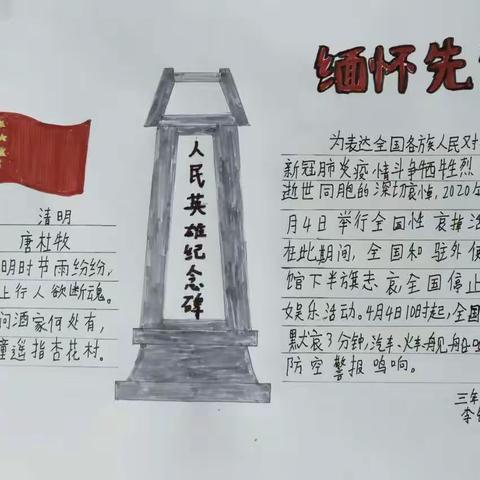 缅怀先
清明
唐杜牧
明时节雨纷纷,
上行人欲断魂。
问酒家何处有,
童遥指杏花村。
人民英雄纪念碑
为表达全国各族人民对
新冠肺炎疫情斗争牺牲烈
逝世同胞的深切哀悼,2020年
月4日举行全国性哀悼活
在此期间,全国和驻外使
馆下半旗志哀,全国停止
娱乐活动。4月4日10时起,全国
默哀3分钟,汽车、火车、舰船
防空警报鸣响。
三年
李